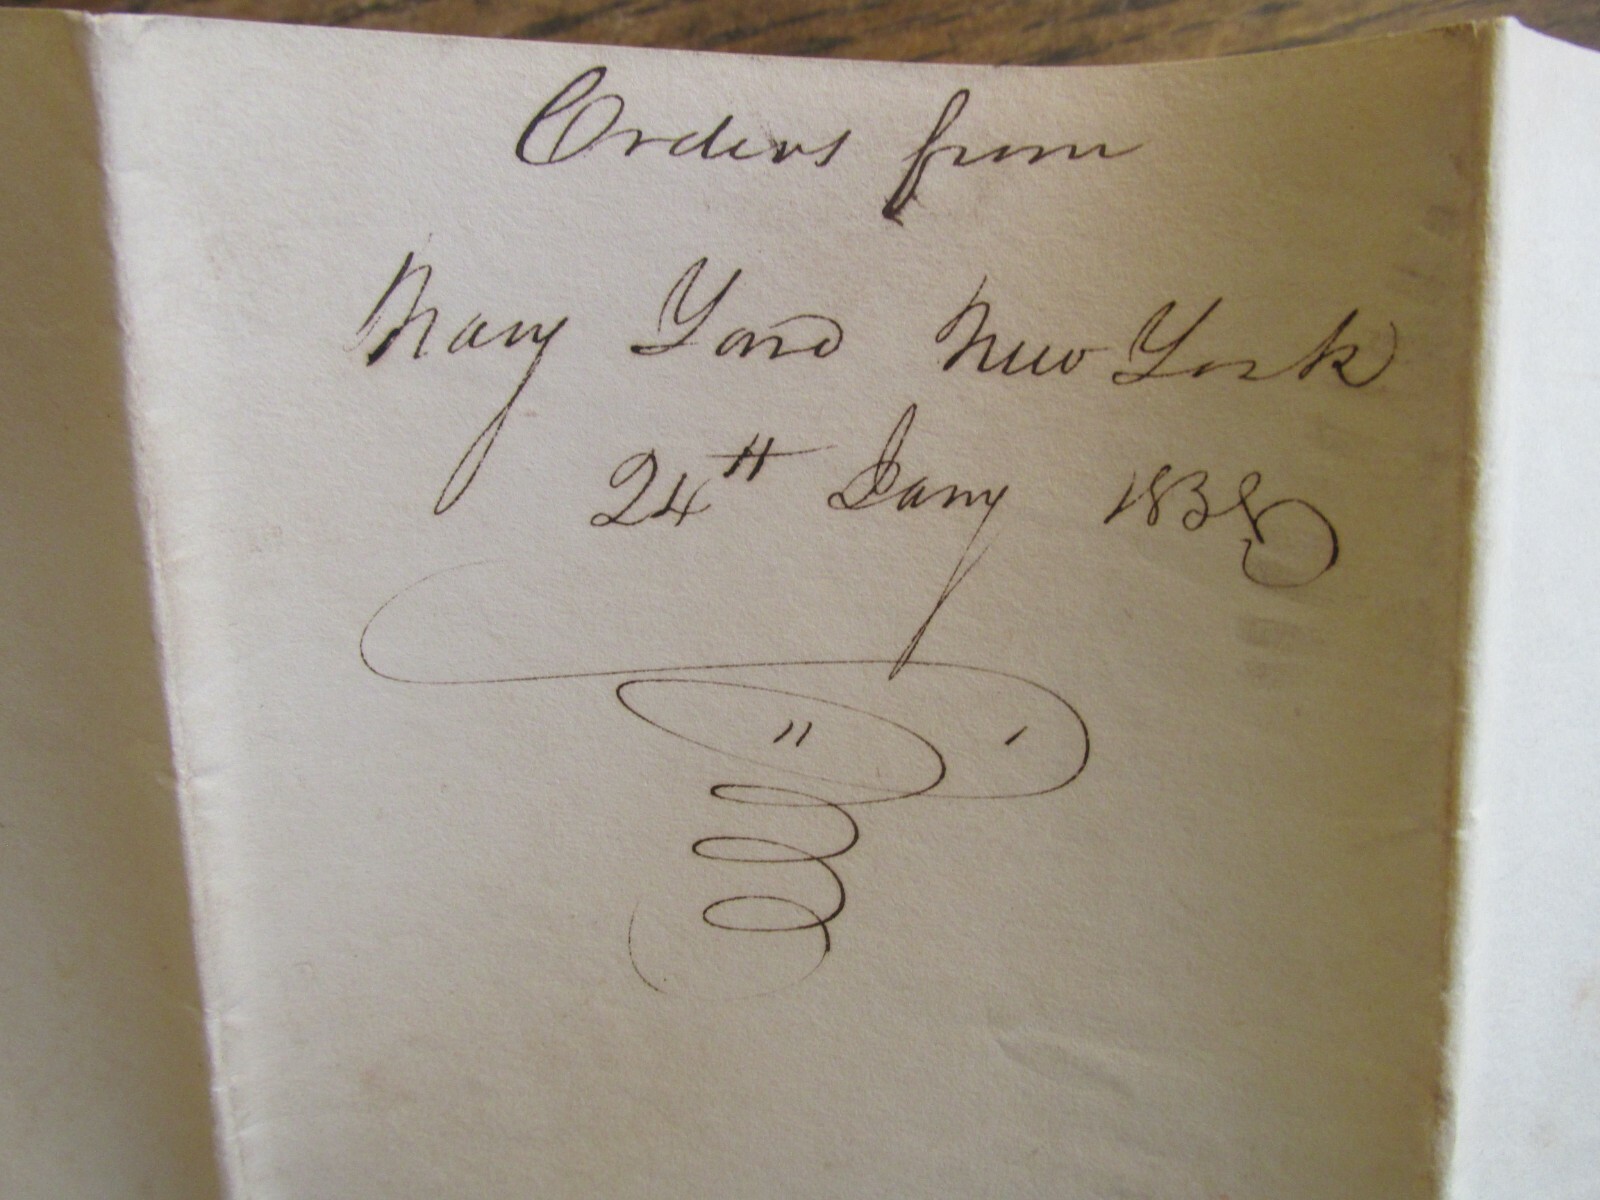 Orders from
Navy Yard New York
24th Jany 1838